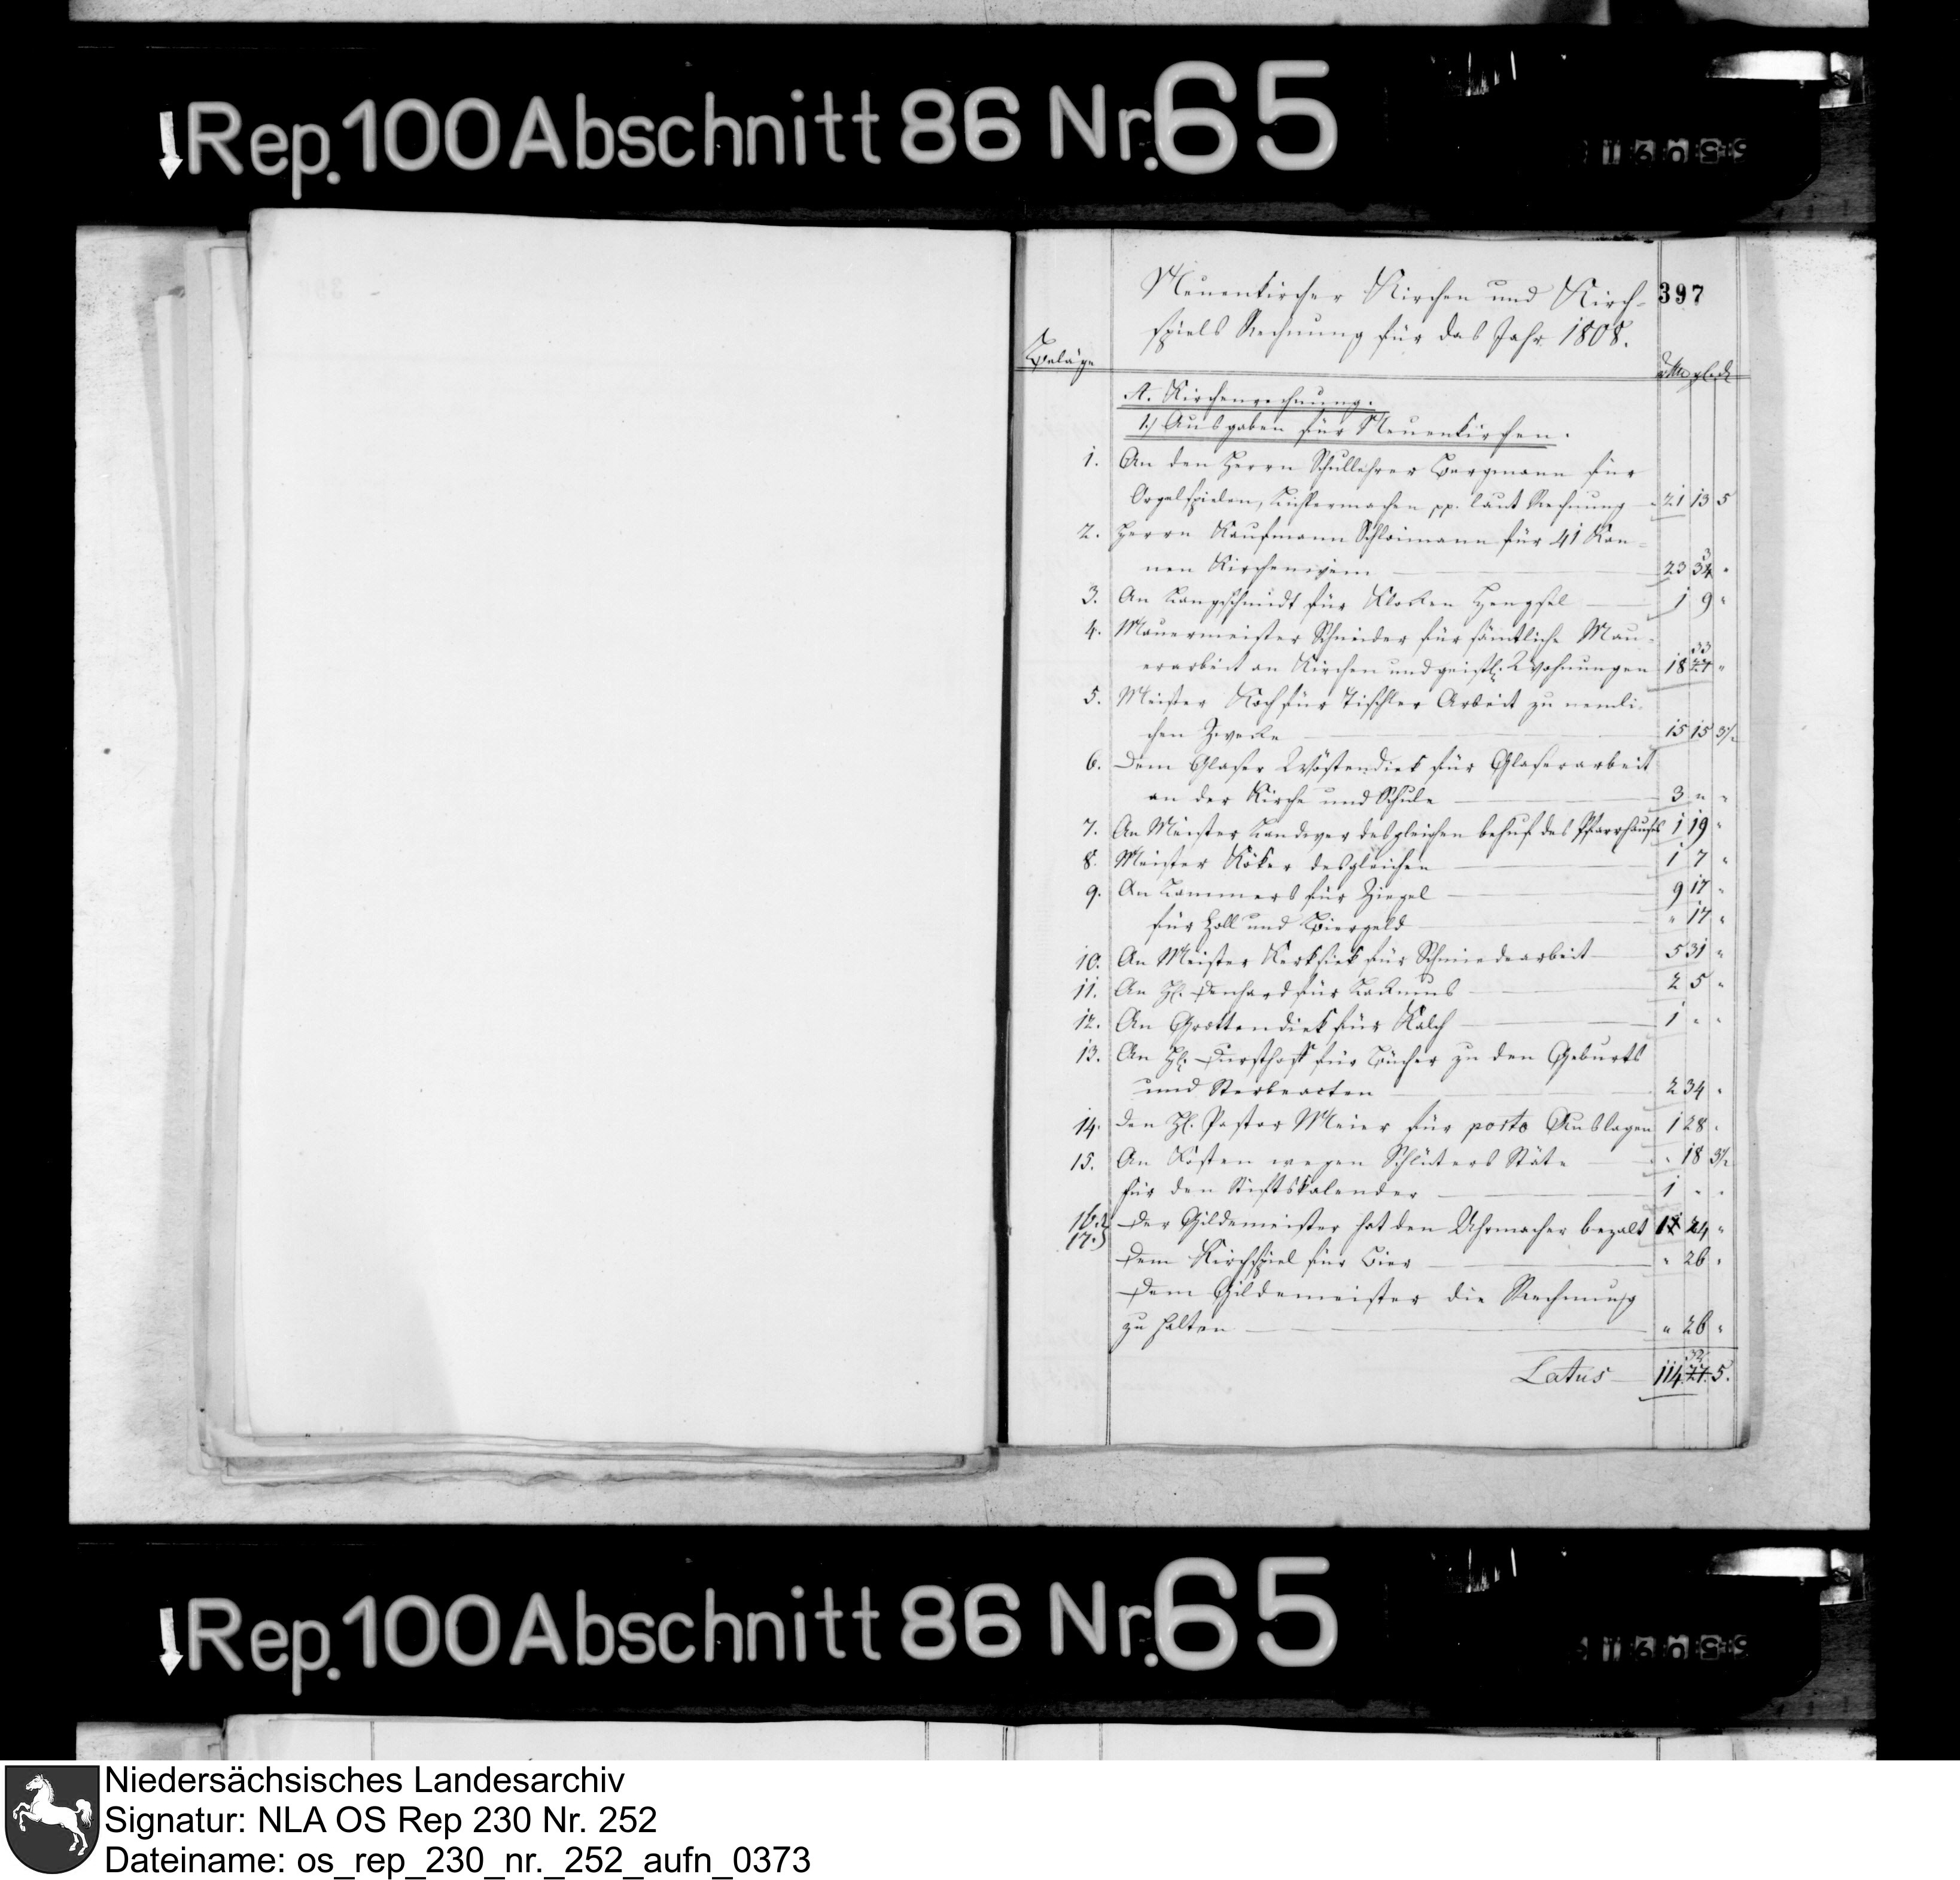 Rep. 100 Abschnitt 86 Nr. 65
397
Neuenkircher Kirchen und Kirch-
spiels Rechnung für das Jahr 1808.
Beläge
A. Kirchenrechnung.
1.) Ausgaben für Neuenkirchen.
1. An den Herrn Schullehrer Bergmann für
Orgelspielen, Küstermachen pp. laut Rechnung 21 13 5
2. Herrn Kaufmann Schloimann für 41 Kan-
nen Kirchenwein 23 34 "
3. An Langschmidt für Klocken Hengsel 1 9 "
4. Mauermeister Schneider für sämtliche Mau-
erarbeit an Kirchen und geistl. Wohnungen 18 33 "
5. Meister Koch für Tischler Arbeit zu nemli-
chen Zwecke 15 15 3½
6. Dem Glaser Wöstendiek für Glaserarbeit
an der Kirche und Schule 3 " "
7. An Meister Landwer desgleichen behuf des Pfarrhauses 1 19 "
8. Meister Köker desgleichen 1 7 "
9. An Lammers für Ziegel 9 17 "
für Zoll und Biergeld " 17 "
10. An Meister Kerksiek für Schmiedearbeit 5 31 "
11. An H. Denhard für 2 5 "
12. An Grottendiek für Kalch 1 " "
13. An H. Dursthoff für Bücher zu den Geburts
und Sterbeacten 2 34 "
14. Den H. Pastor Meier für porto Auslagen 1 28 "
15. An Kosten wegen Schlüters Stäte " 18 3½
für den Stiftskalender 1 " "
16. Der Gildemeister hat den Uhrmacher bezalt 1 24 "
17.
Dem Kirchspiel für Bier " 26 "
Dem Gildemeister die Rechnung
zu halten " 26 "
Latus 114 32 5.
Rep. 100 Abschnitt 86 Nr. 65
Niedersächsisches Landesarchiv
Signatur: NLA OS Rep 230 Nr. 252
Dateiname: os_rep_230_nr._252_aufn_0373